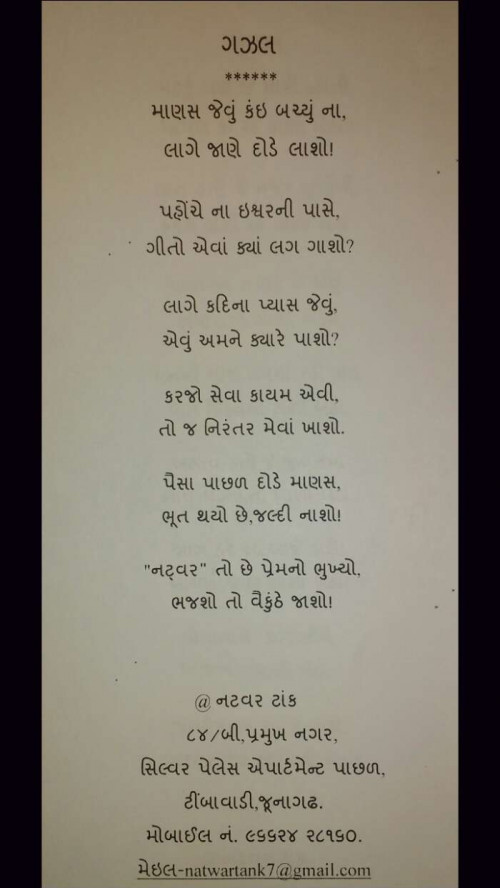 ગઝલ
******
માણસ જેવું કંઇ બચ્યું ના,
લાગે જાણે દોડે લાશો!
પહોંચે ના ઇશ્વરની પાસે,
ગીતો એવાં ક્યાં લગ ગાશો?
લાગે કદિના પ્યાસ જેવું,
એવું અમને ક્યારે પાશો?
કરજો સેવા કાયમ એવી,
તો જ નિરંતર મેવાં ખાશો.
પૈસા પાછળ દોડે માણસ,
ભૂત થયો છે,જલ્દી નાશો!
"નટ્વર" તો છે પ્રેમનો ભુખ્યો,
ભજશો તો વૈકુંઠે જાશો!
@ નટવર ટાંક
૮૪/બી,પ્રમુખ નગર,
સિલ્વર પેલેસ એપાર્ટમેન્ટ પાછળ,
ટીંબાવાડી,જૂનાગઢ.
મોબાઈલ નં. ૯૬૬૨૪ ૨૮૧૬૦.
મેઇલ-natwartank7@gmail.com